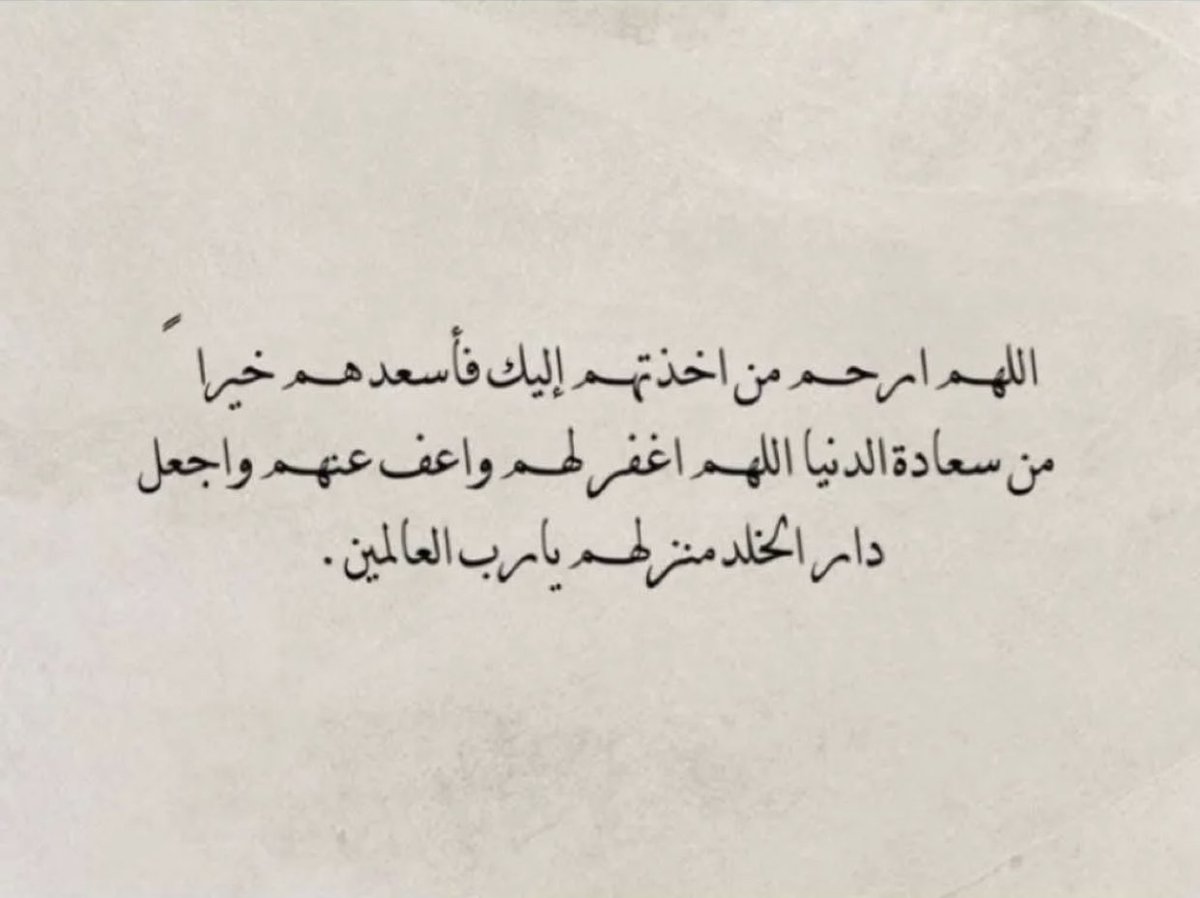 اللهم ارحم من اخذتهم إليك فأسعدهم خيراً
من سعادة الدنيا اللهم اغفر لهم واعف عنهم واجعل
دار الخلد منزلهم يارب العالمين .